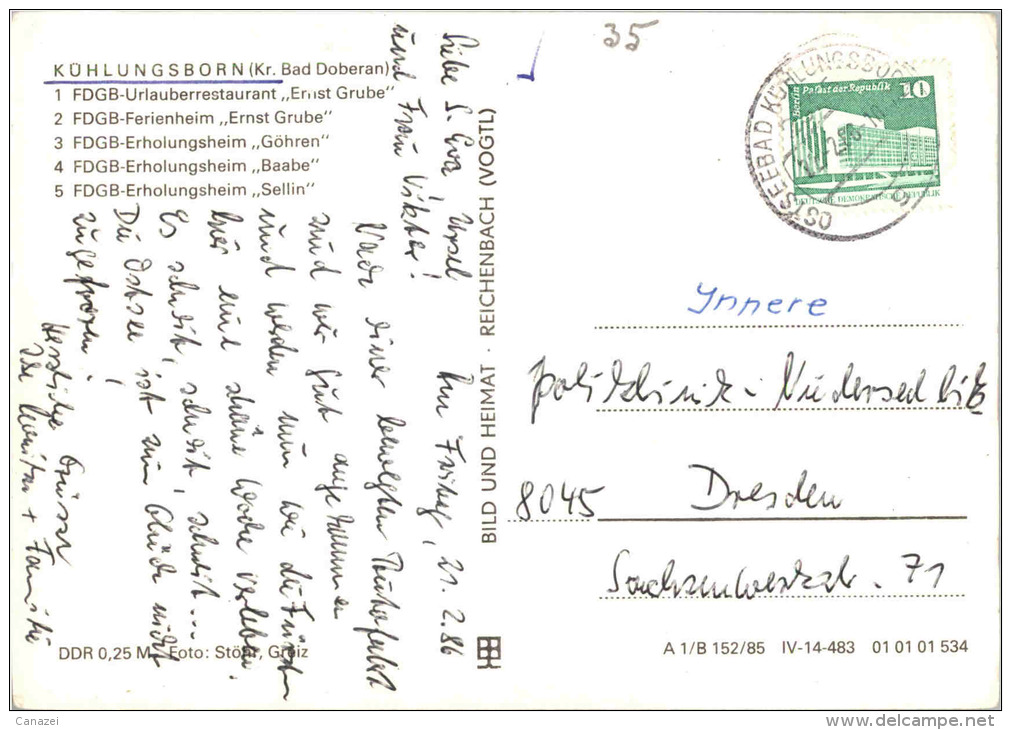 35
KÜHLUNGSBORN (Kr. Bad Doberan)
1 FDGB-Urlauberrestaurant „Ernst Grube“
2 FDGB-Ferienheim „Ernst Grube“
3 FDGB-Erholungsheim „Göhren“
4 FDGB-Erholungsheim „Baabe“
5 FDGB-Erholungsheim „Sellin“
Liebe S. Eva, Ursel
und Frau Viktor!
Am Freitag, 21. 2. 86
Nach einer bewegten
sind wir gut angekommen
und werden nun wie die Fürsten
hier eine schöne Woche verleben.
Es schneit, schneit, schneit...
Die Ostsee ist zum Glück nicht
zugefroren!
Herzliche Grüsse
+ Familie
BILD UND HEIMAT · REICHENBACH (VOGTL)
OSTSEEBAD KÜHLUNGSBORN
Berlin Palast der Republik 10
DEUTSCHE DEMOKRATISCHE REPUBLIK
Innere
Poliklinik - Niedersedlitz
8045 Dresden
71
DDR 0,25 M Foto: Stöhr, Greiz
A 1/B 152/85 IV-14-483 01 01 01 534
Canazei
delcampe.net